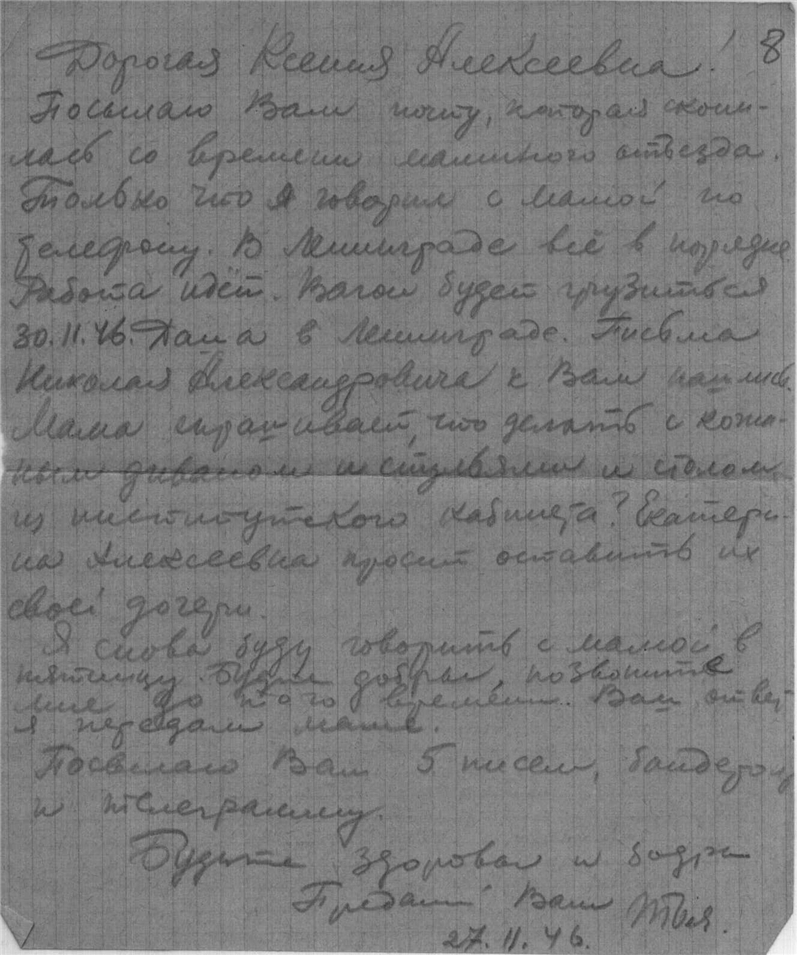 8
Дорогая Ксения Алексеевна!
Посылаю Вам почту, которая скопи-
лась со времени маминого отъезда.
Только что я говорил с мамой по
телефону. В Ленинграде всё в порядке
Работа идёт. Вагон будет грузиться
30.11.46. Дама в Ленинграде. Письма
Николая Александровича к Вам нашлись.
Мама спрашивает, что делать с кожа-
ным диваном и стульями и столом
из институтского кабинета? Екатери-
на Алексеевна просит оставить их
своей дочери.
Я снова буду говорить с мамой в
пятницу. Будьте добры, позвоните
мне до того времени. Ваш ответ
я передам маме.
Посылаю Вам 5 писем, бандероль
и телеграмму.
Будьте здоровы и бодры
Преданный Вам
27.11.46.